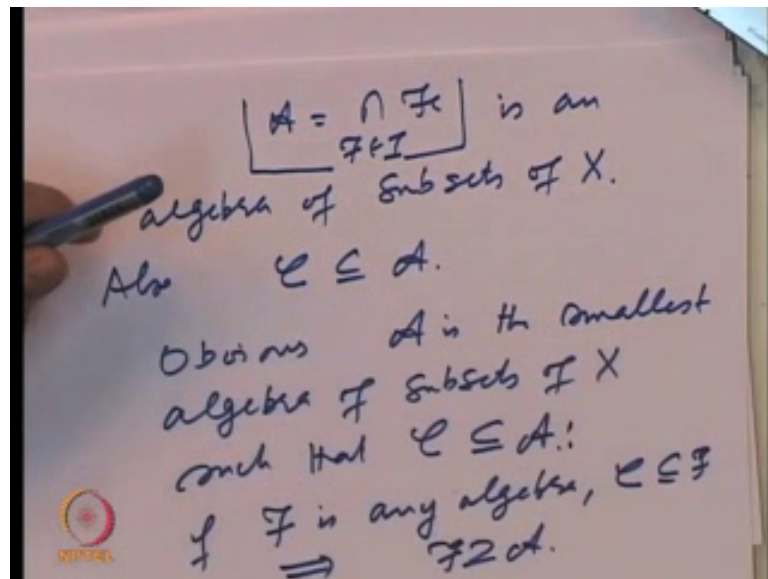 A = ∩ F is an
F∈I
algebra of Subsets of X.
Also C ⊆ A.
Obvious A is the smallest
algebra of Subsets of X
such that C ⊆ A:
if F is any algebra, C ⊆ F
⟹ F ⊇ A.
NPTEL